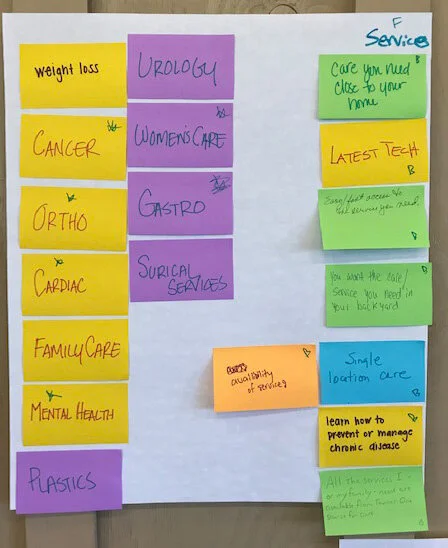 F
Services
weight loss
CANCER
ORTHO
CARDIAC
FAMILY CARE
MENTAL HEALTH
PLASTICS
UROLOGY
WOMEN'S CARE
GASTRO
SURICAL
SERVICES
B
Care you need
close to your
home
LATEST TECH
B
Easy/fast access to
services you need.
You want the care/
service you need in
your backyard
B
availibility
of services
Single
location care
B
learn how to
prevent or manage
chronic disease
All the services I -
or my family - need are
available from